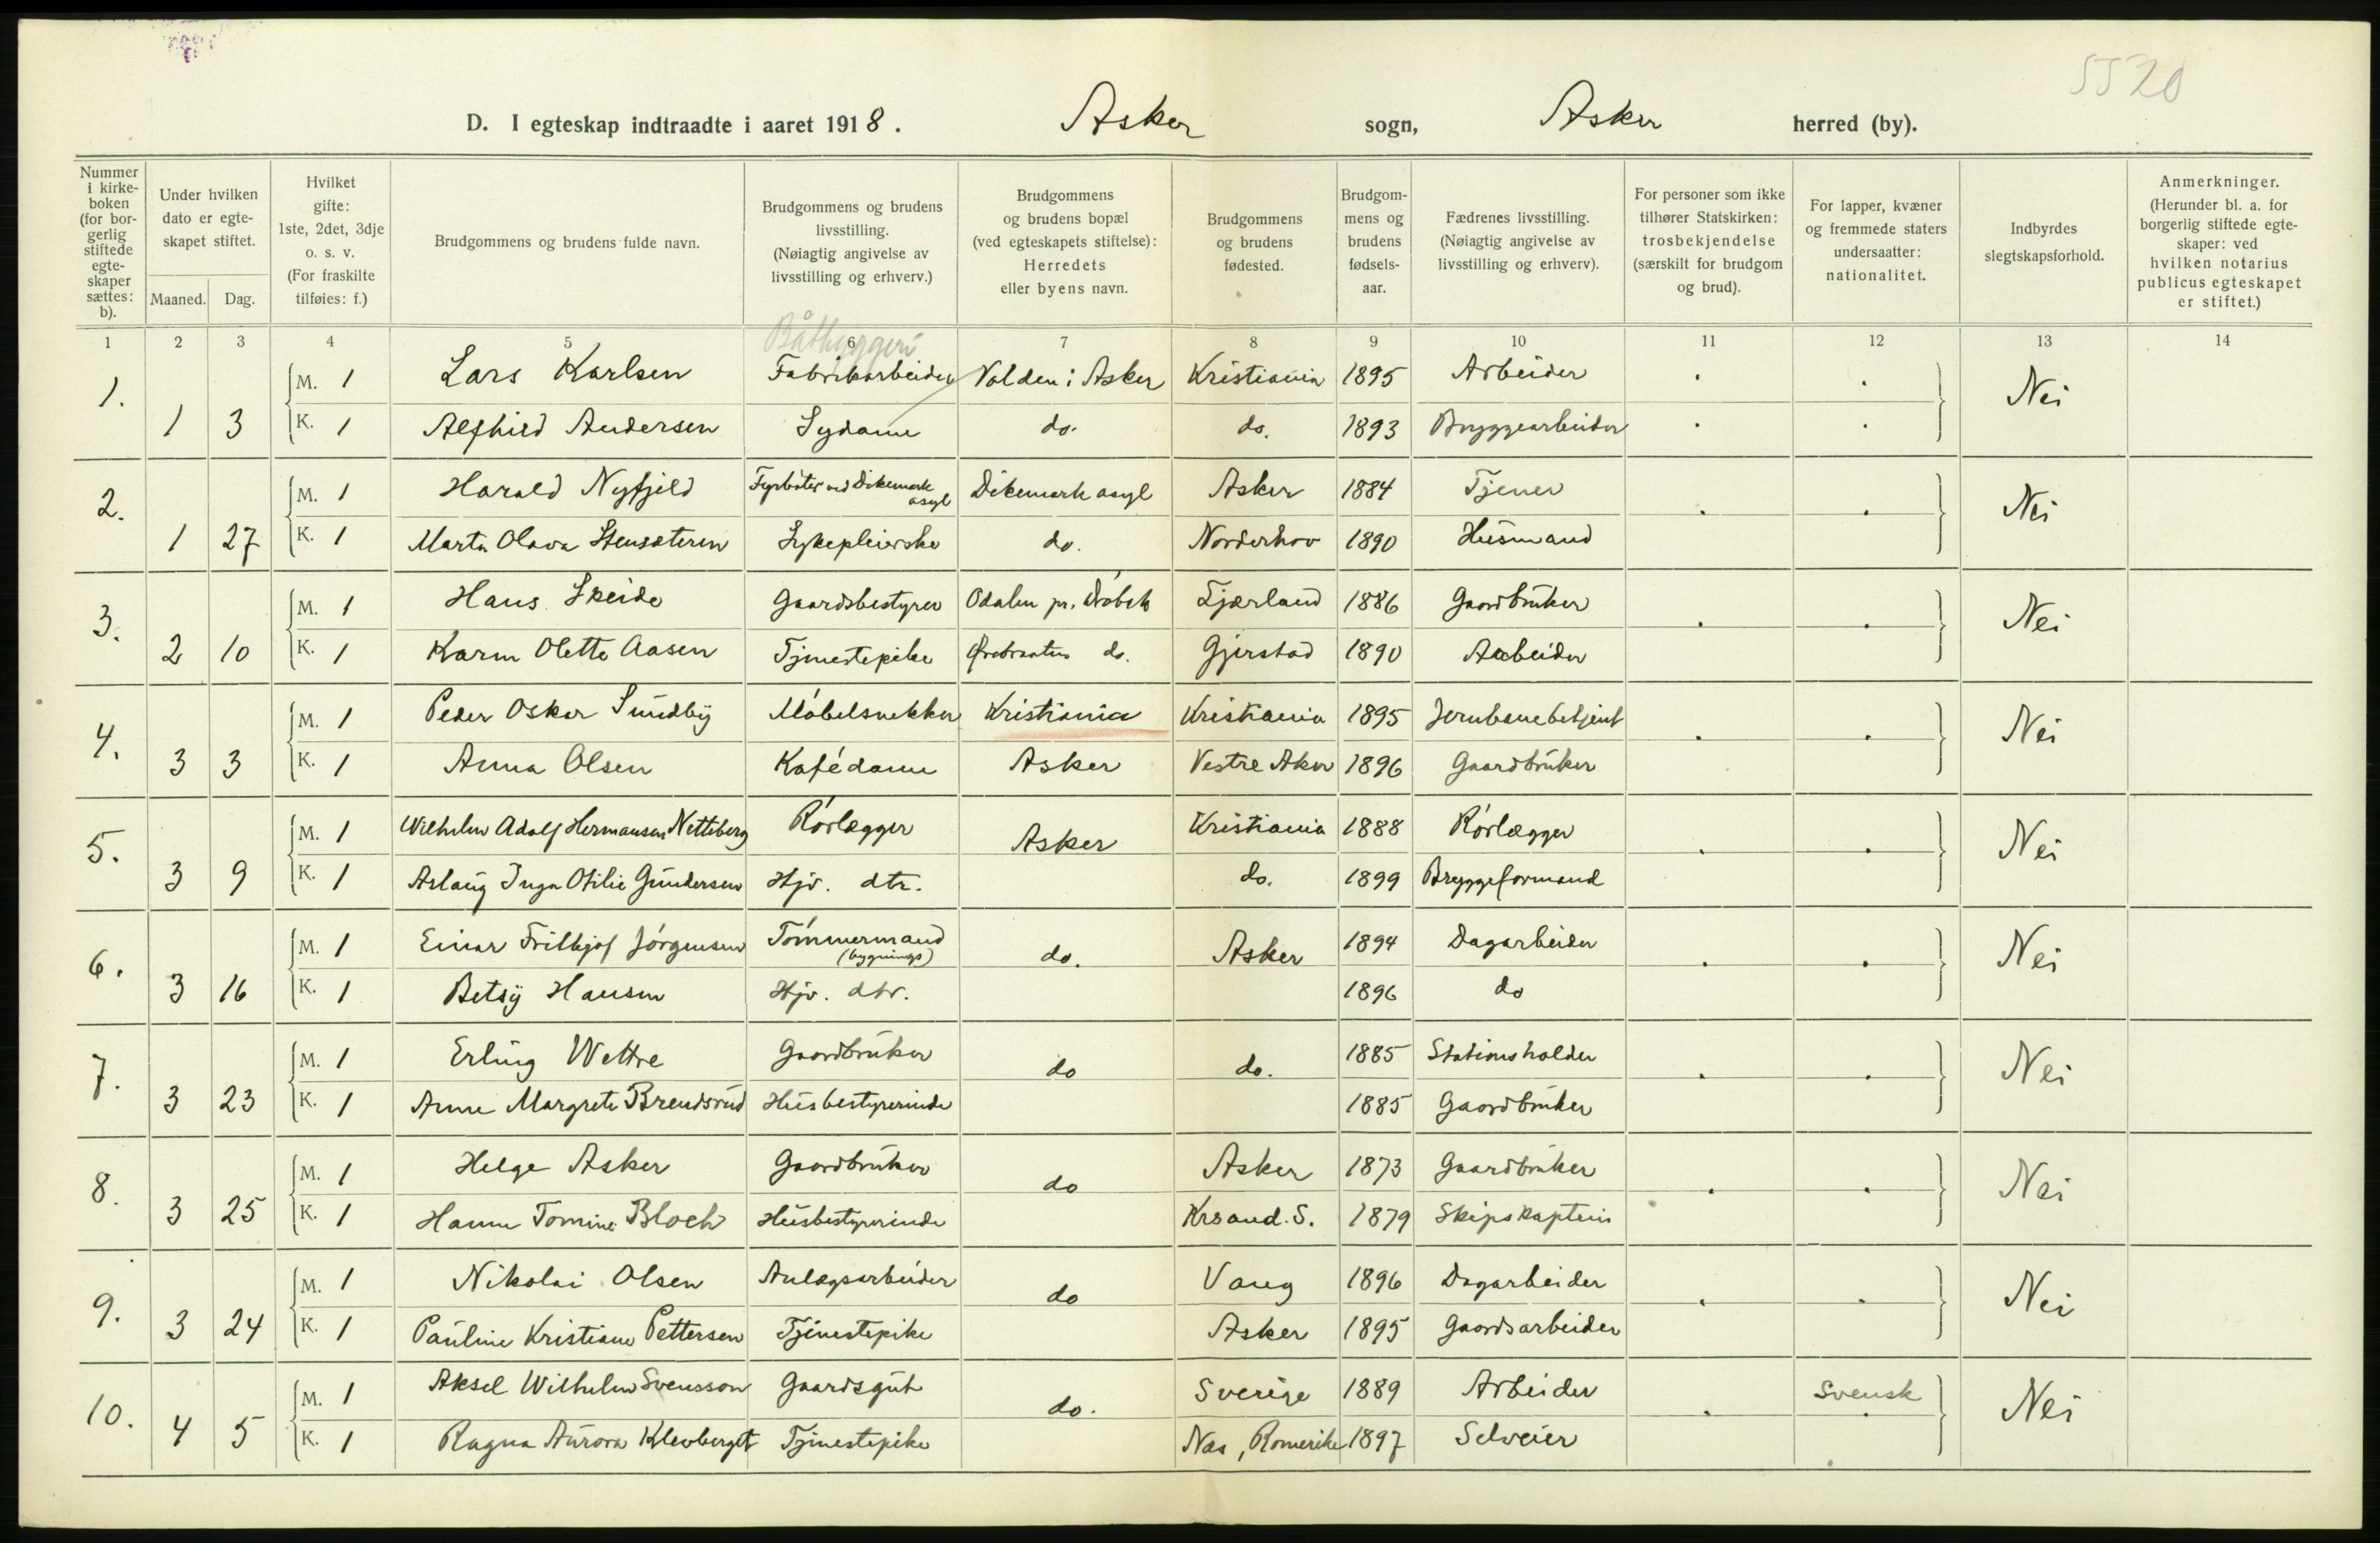 5520
D. I egteskap indtraadte i aaret 1918. Asker sogn, Asker herred (by).
Nummer i kirke-boken (for bor-gerlig stiftede egte-skaper sættes: b).
Under hvilken dato er egte-skapet stiftet.
Maaned. Dag.
Hvilket gifte: 1ste, 2det, 3dje o. s. v. (For fraskilte tilføies: f.)
Brudgommens og brudens fulde navn.
Brudgommens og brudens livsstilling. (Nøiagtig angivelse av livsstilling og erhverv.)
Brudgommens og brudens bopæl (ved egteskapets stiftelse): Herredets eller byens navn.
Brudgommens og brudens fødested.
Brudgom-mens og brudens fødsels-aar.
Fædrenes livsstilling. (Nøiagtig angivelse av livsstilling og erhverv).
For personer som ikke tilhører Statskirken: trosbekjendelse (særskilt for brudgom og brud).
For lapper, kvæner og fremmede staters undersaatter: nationalitet.
Indbyrdes slegtskapsforhold.
Anmerkninger. (Herunder bl. a. for borgerlig stiftede egte-skaper: ved hvilken notarius publicus egteskapet er stiftet.)
1 2 3 4 5 6 7 8 9 10 11 12 13 14
Båtbyggeri
1. M. 1 Lars Karlsen Fabrikarbeider Valden i Asker Kristiania 1895 Arbeider . . Nei
1 3 K. 1 Alfhild Andersen Sydame do. do. 1893 Bryggearbeider . .
2. M. 1 Harald Nyfjeld Fyrbøter ved Dikemark asyl Dikemark asyl Asker 1884 Tjener . . Nei
1 27 K. 1 Marta Olava Stensæteren Sykepleierske do. Norderhov 1890 Husmand
3. M. 1 Hans Skeide Gaardsbestyrer Odalen pr. Drøbak Fjærland 1886 Gaardbruker . . Nei
2 10 K. 1 Karen Olette Aasen Tjenestepike do. Gjerstad 1890 Arbeider
4. M. 1 Peder Oskar Sundby Møbelsnekker Kristiania Kristiania 1895 Jernbanebetjent . . Nei
3 3 K. 1 Anna Olsen Kafédame Asker Vestre Aker 1896 Gaardbruker
5. M. 1 Wilhelm Adolf Hermansen Netteberg Rørlægger Asker Kristiania 1888 Rørlægger . . Nei
3 9 K. 1 Aslaug Inga Otilie Gundersen Hjv. dtr. do. 1899 Bryggeformand
6. M. 1 Einar Frithjof Jørgensen Tømmermand (bygnings) do. Asker 1894 Dagarbeider . . Nei
3 16 K. 1 Betsy Hansen Hjv. dtr. 1896 do
7. M. 1 Erling Wettre Gaardbruker do do. 1885 Stationsholder . . Nei
3 23 K. 1 Anne Margrete Brendsrud Husbestyrerinde 1885 Gaardbruker
8. M. 1 Helge Asker Gaardbruker do Asker 1873 Gaardbruker . . Nei
3 25 K. 1 Hanne Tomine Bloch Husbestyrerinde Krsand. S. 1879 Skipskaptein
9. M. 1 Nikolai Olsen Anlægsarbeider do Vang 1896 Dagarbeider . . Nei
3 24 K. 1 Pauline Kristiane Pettersen Tjenestepike Asker 1895 Gaardsarbeider
10. M. 1 Aksel Wilhelm Svensson Gaardsgut do. Sverige 1889 Arbeider . Svensk Nei
4 5 K. 1 Ragna Aurora Klevberget Tjenestepike Næs, Romerike 1897 Selveier .